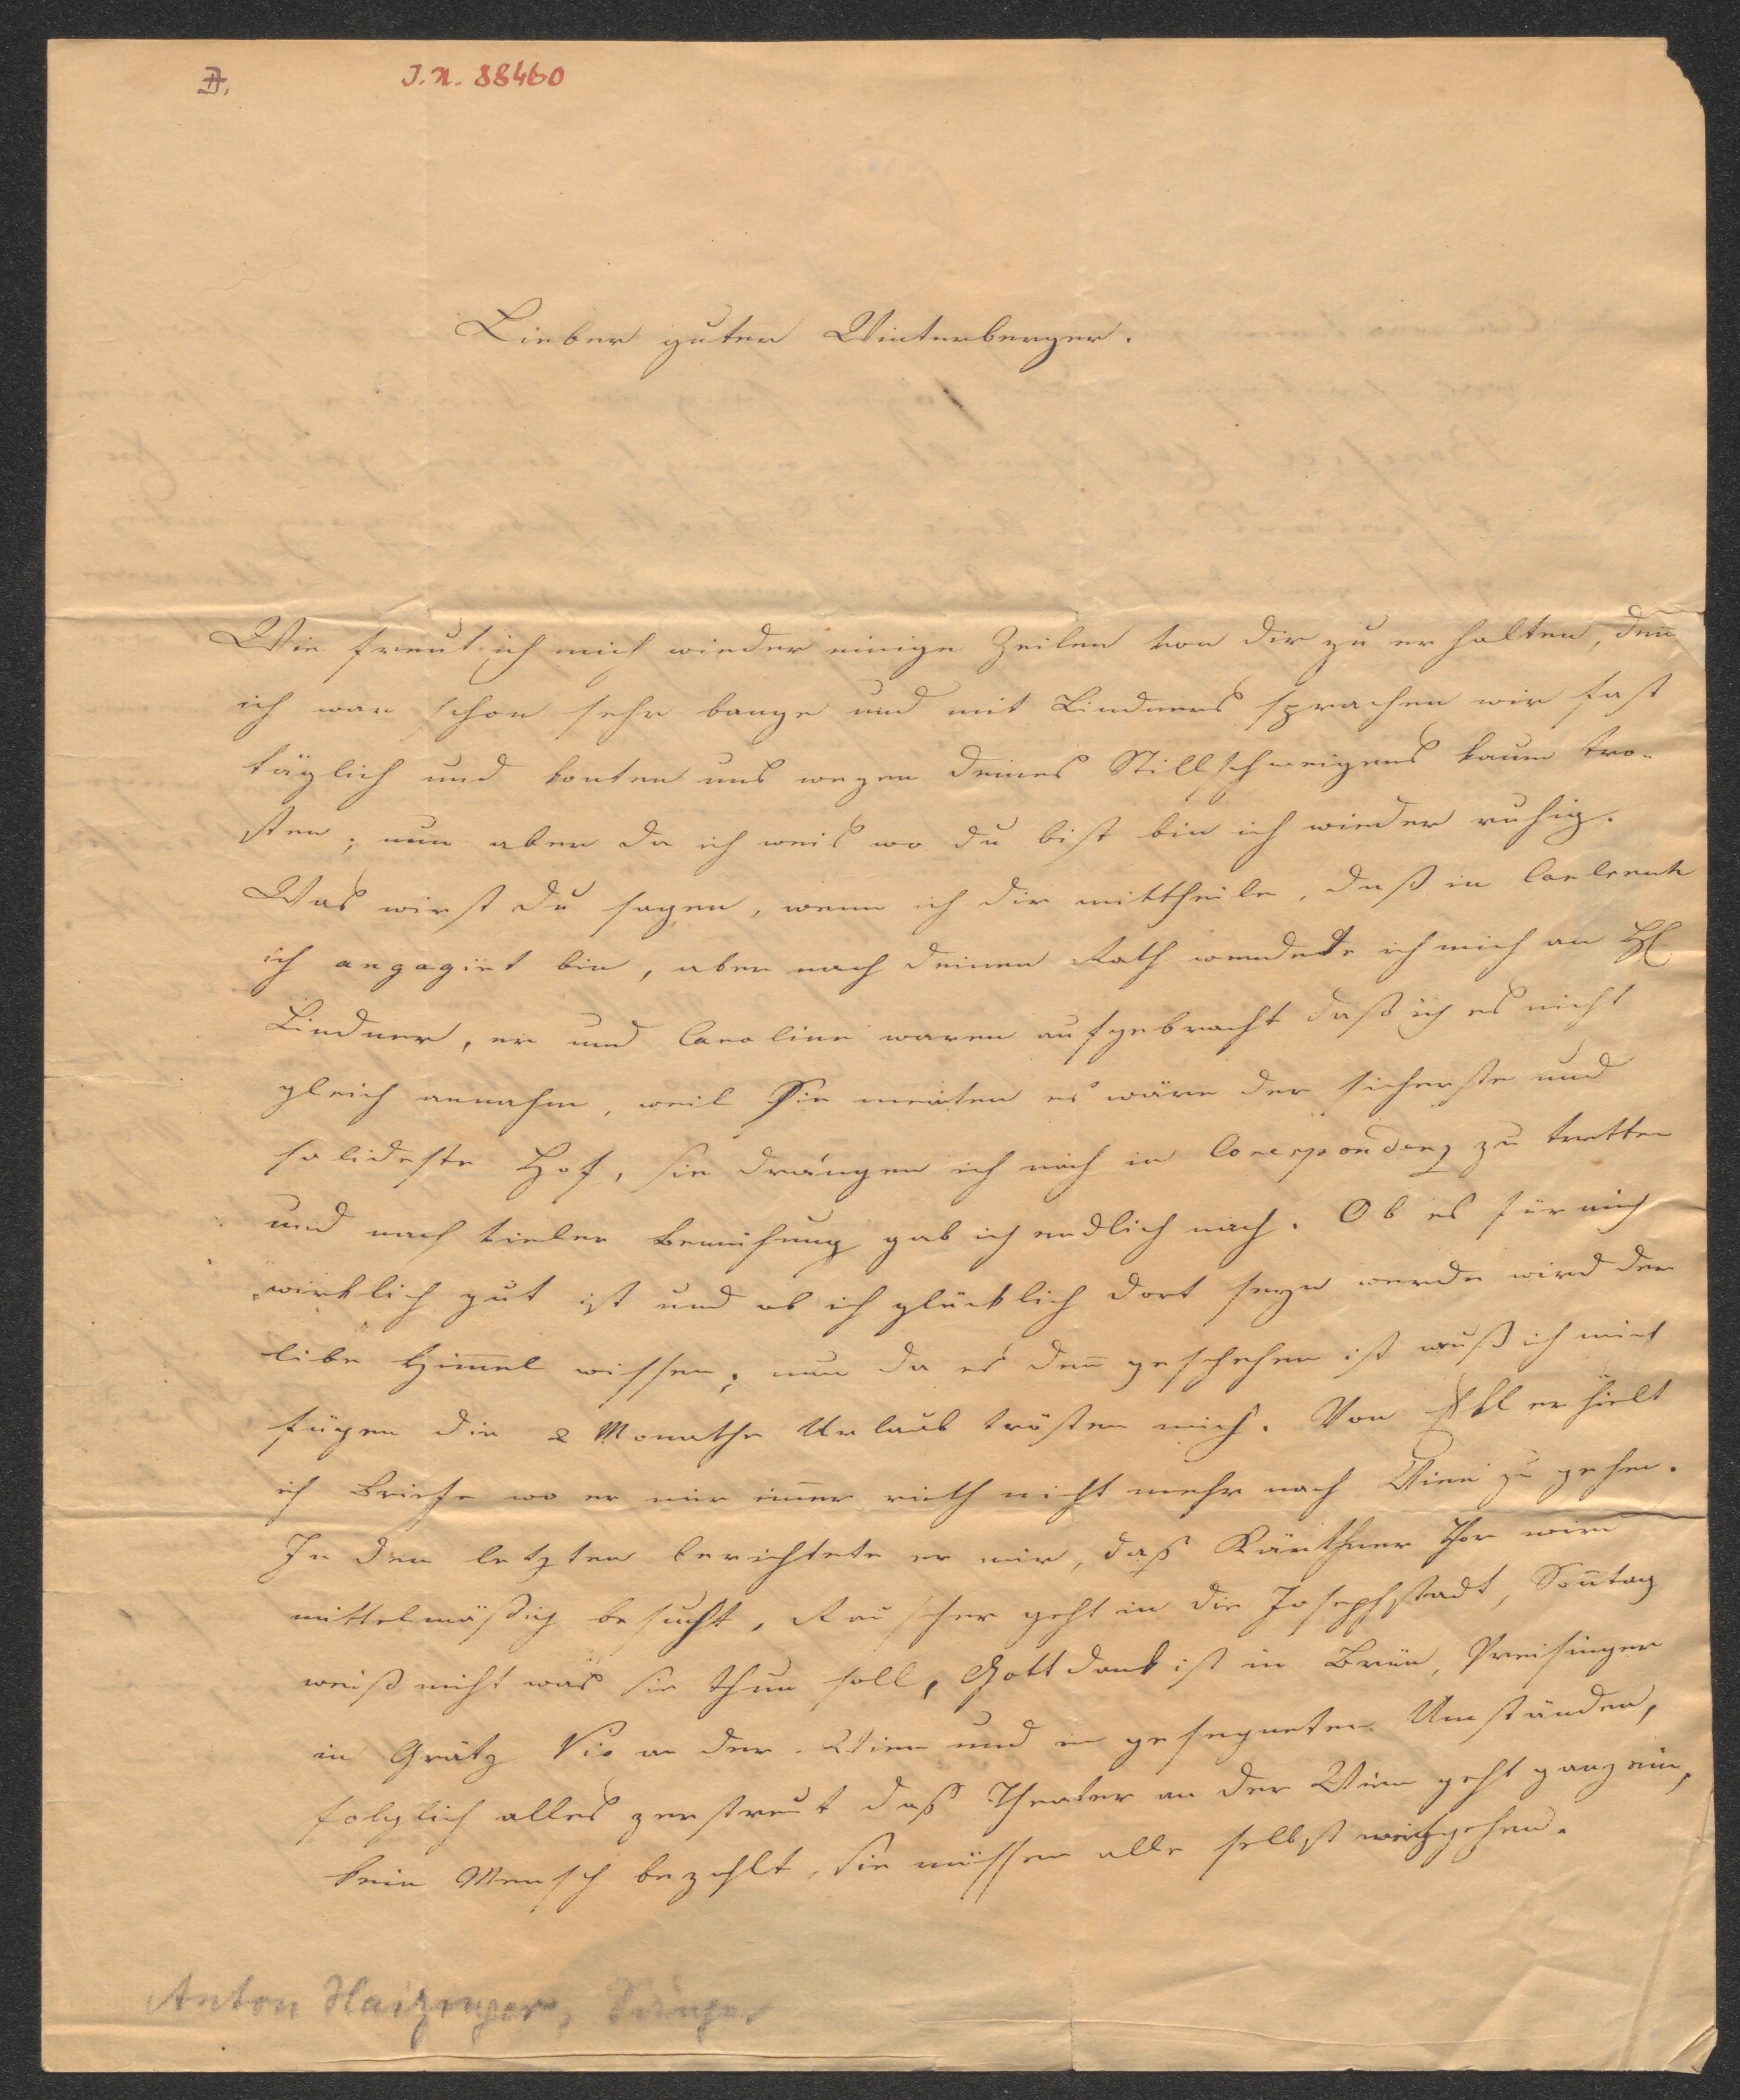 D.
I. N. 88460
Lieber guter Winterberger.
Wie freut ich mich wieder einige Zeilen von dir zu erhalten, den̄
ich war schon sehr bange und mit Lindners sprachen wir fast
täglich und konten uns wegen deines Stillschweigens kaum trö-
sten; nun aber da ich weis wo du bist bin ich wieder ruhig.
Was wirst du sagen, wenn ich dir mittheile, daß in Carlsruh
ich angagirt bin, aber nach deinen Rath wendete ich mich an H
Lindner, er und Caroline waren aufgebracht daß ich es nicht
gleich annahm, weil Sie meinten es wäre der sicherste und
solideste Hof, sie drangen ich mich in Corespondenz zu tretten
und nach vieler Bemühung gab ich endlich nach. Ob es für mich
wirklich gut ist und ob ich glücklich dort seyn werde wird der
liebe Him̄el wissen; nun da es den̄ geschehen ist muß ich mich
fügen die 2 Monathe Urlaub trösten mich. Von erhielt
ich Briefe wo er mir im̄er rieth nicht mehr nach Wien zu gehen.
In den letzten berichtete er mir, daß Kärnthner Thor wird
mittelmäßig besucht, Rauscher geht in die Josephstadt, Son̄tag
weiß nicht was sie thun soll, Gottdank ist in Brün, Preisinger
in Grätz Vio an der Wien und in gesegneten Umständen,
folglich alles zerstreut daß Theater an der Wien geht ganz ein,
kein Mensch bezahlt, sie müssen alle selbst gehen.
Anton Haizinger, Sänger